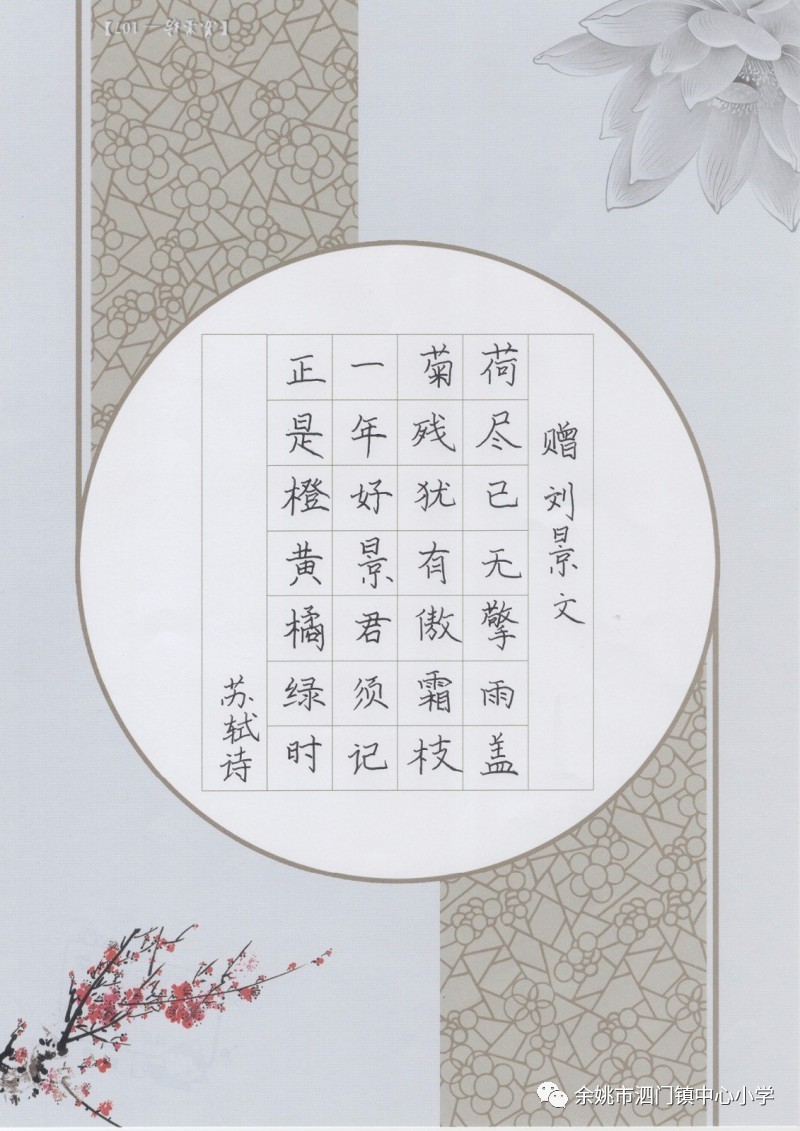 赠刘景文
荷尽已无擎雨盖
菊残犹有傲霜枝
一年好景君须记
正是橙黄橘绿时
苏轼诗
余姚市泗门镇中心小学